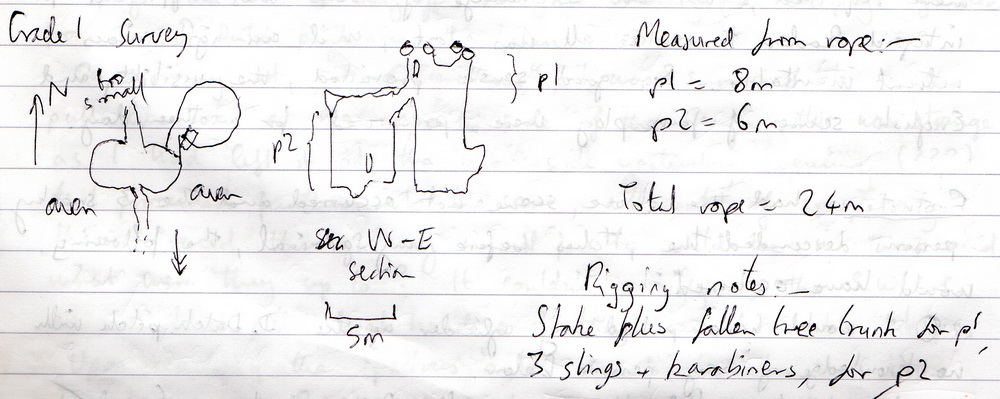 Grade 1 Survey
N
too
small
aven
aven
p2
p1
W-E
section
5m
Measured from rope:-
p1 = 8m
p2 = 6m
Total rope = 24m
Rigging notes:-
Stake plus fallen tree trunk for p1,
3 slings + karabiners, for p2